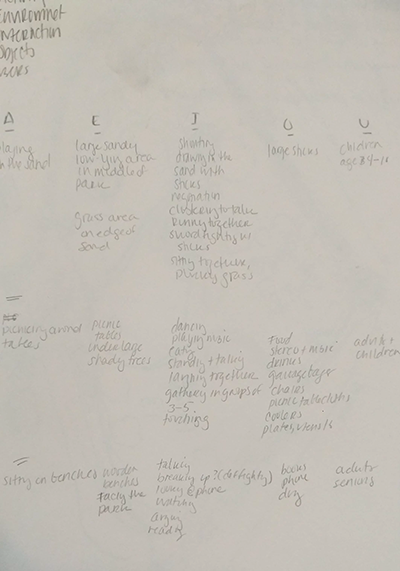 Environmnet
Interaction
Objects
Users
A E I O U
playing
in the sand
large sandy
low-lying area
in middle of
park
grass area
on edge of
sand
shouting
drawing in the
sand with
sticks
clustering to talk
running together
swordfighting w/
sticks
sitting together,
grass
large sticks
children
ages 4-12
picnicing around
tables
picnic
tables
under large
shady trees
dancing
playing music
eating
standing + talking
laughing together
gathering in groups of
3-5
touching
food
stereo + music
drinks
garbage bags
chairs
picnic tablecloths
coolers
plates, utensils
adults +
children
sitting on benches
wooden
benches
facing the
park
talking
breaking up? (def fighting)
phone
waiting
arguing
reading
books
phone
dog
adults
seniors